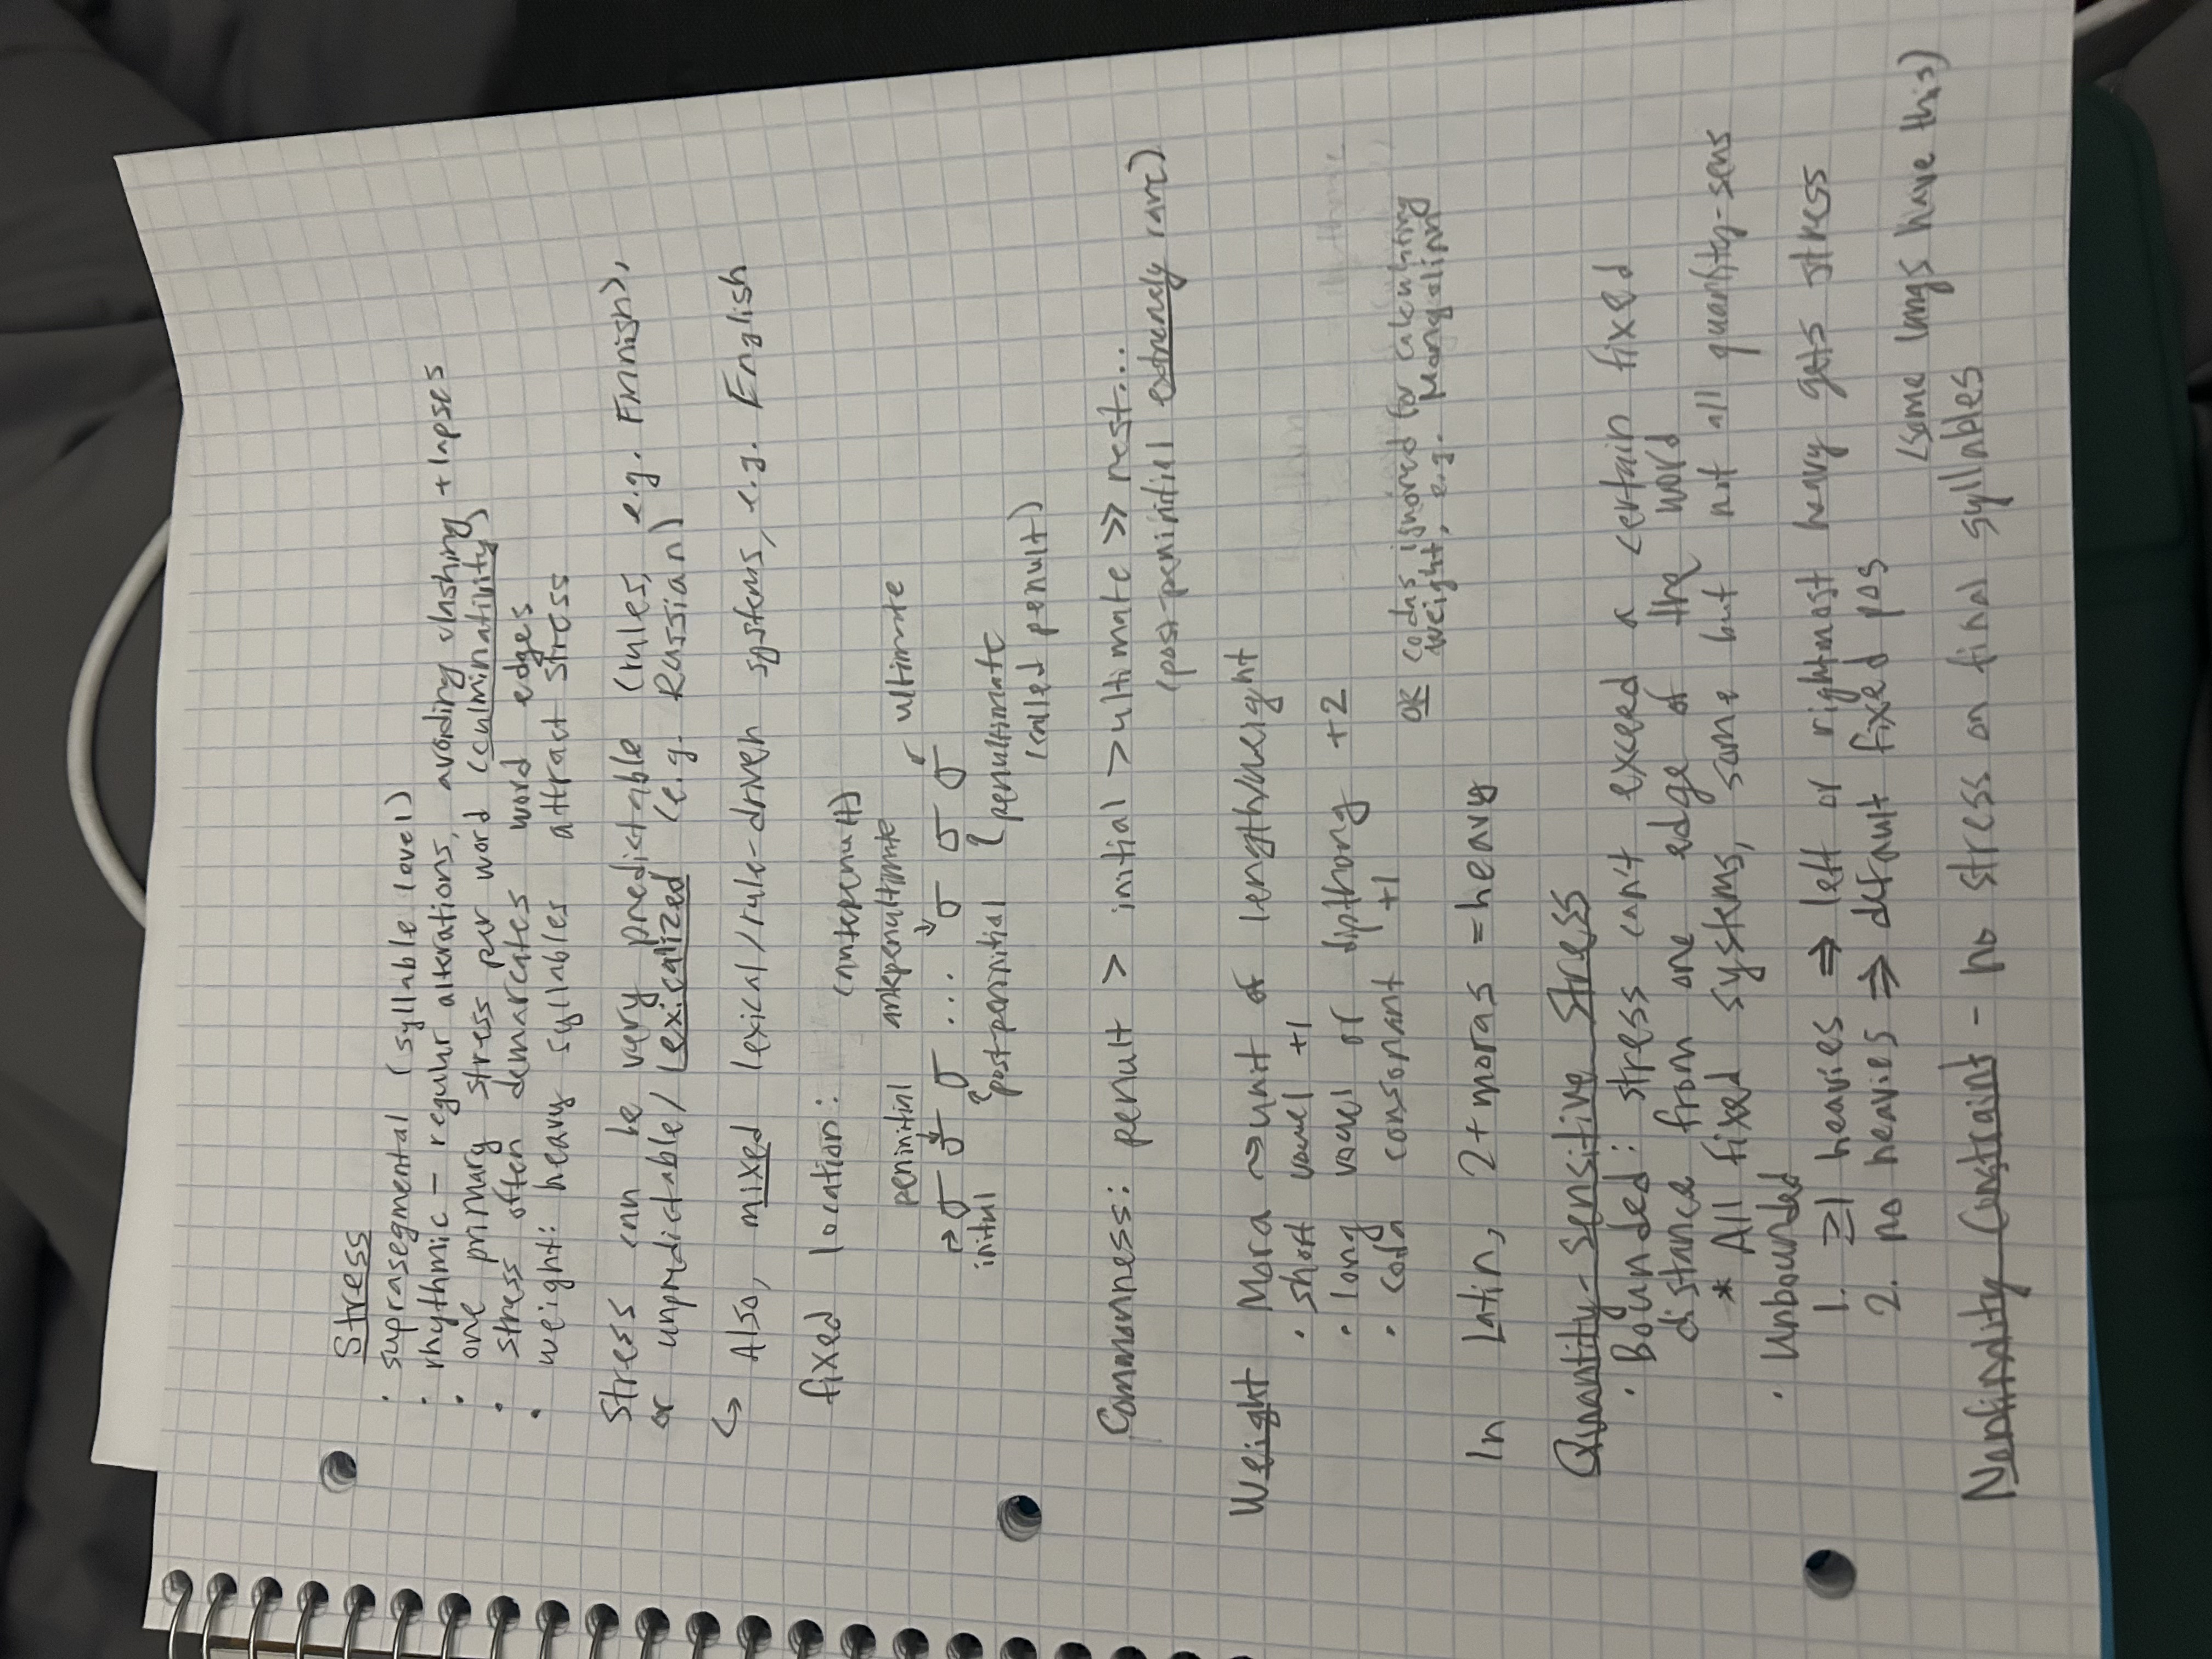 Stress
· suprasegmental (syllable level)
· rhythmic - regular alterations, avoiding clashing + lapses
· one primary stress per word (culminativity)
· stress often demarcates word edges
· weight: heavy syllables attract stress
Stress can be very predictable (rules, e.g. Finnish),
or unpredictable/lexicalized (e.g. Russian)
↳ Also, mixed lexical/rule-driven systems, e.g. English
fixed location:
(antepenult)
peninitial antepenultimate ultimate
→ σ σ σ ... σ σ σ
initial post-peninitial penultimate
(called penult)
Commonness: penult > initial > ultimate >> rest...
(post-peninitial extremely rare)
Weight Mora ~> unit of length/weight
· short vowel +1
· long vowel or dipthong +2
· coda consonant +1
OR codas ignored for calculating
weight, e.g. Mongolian
In Latin, 2+ moras = heavy
Quantity-Sensitive Stress
· Bounded: stress can't exceed a certain fixed
distance from one edge of the word
* All fixed systems, some but not all quantity-sens
· Unbounded
1. ≥1 heavies ⇒ left or rightmost heavy gets stress
2. no heavies ⇒ default fixed pos
(some langs have this)
Nonfinality Constraint - no stress on final syllables